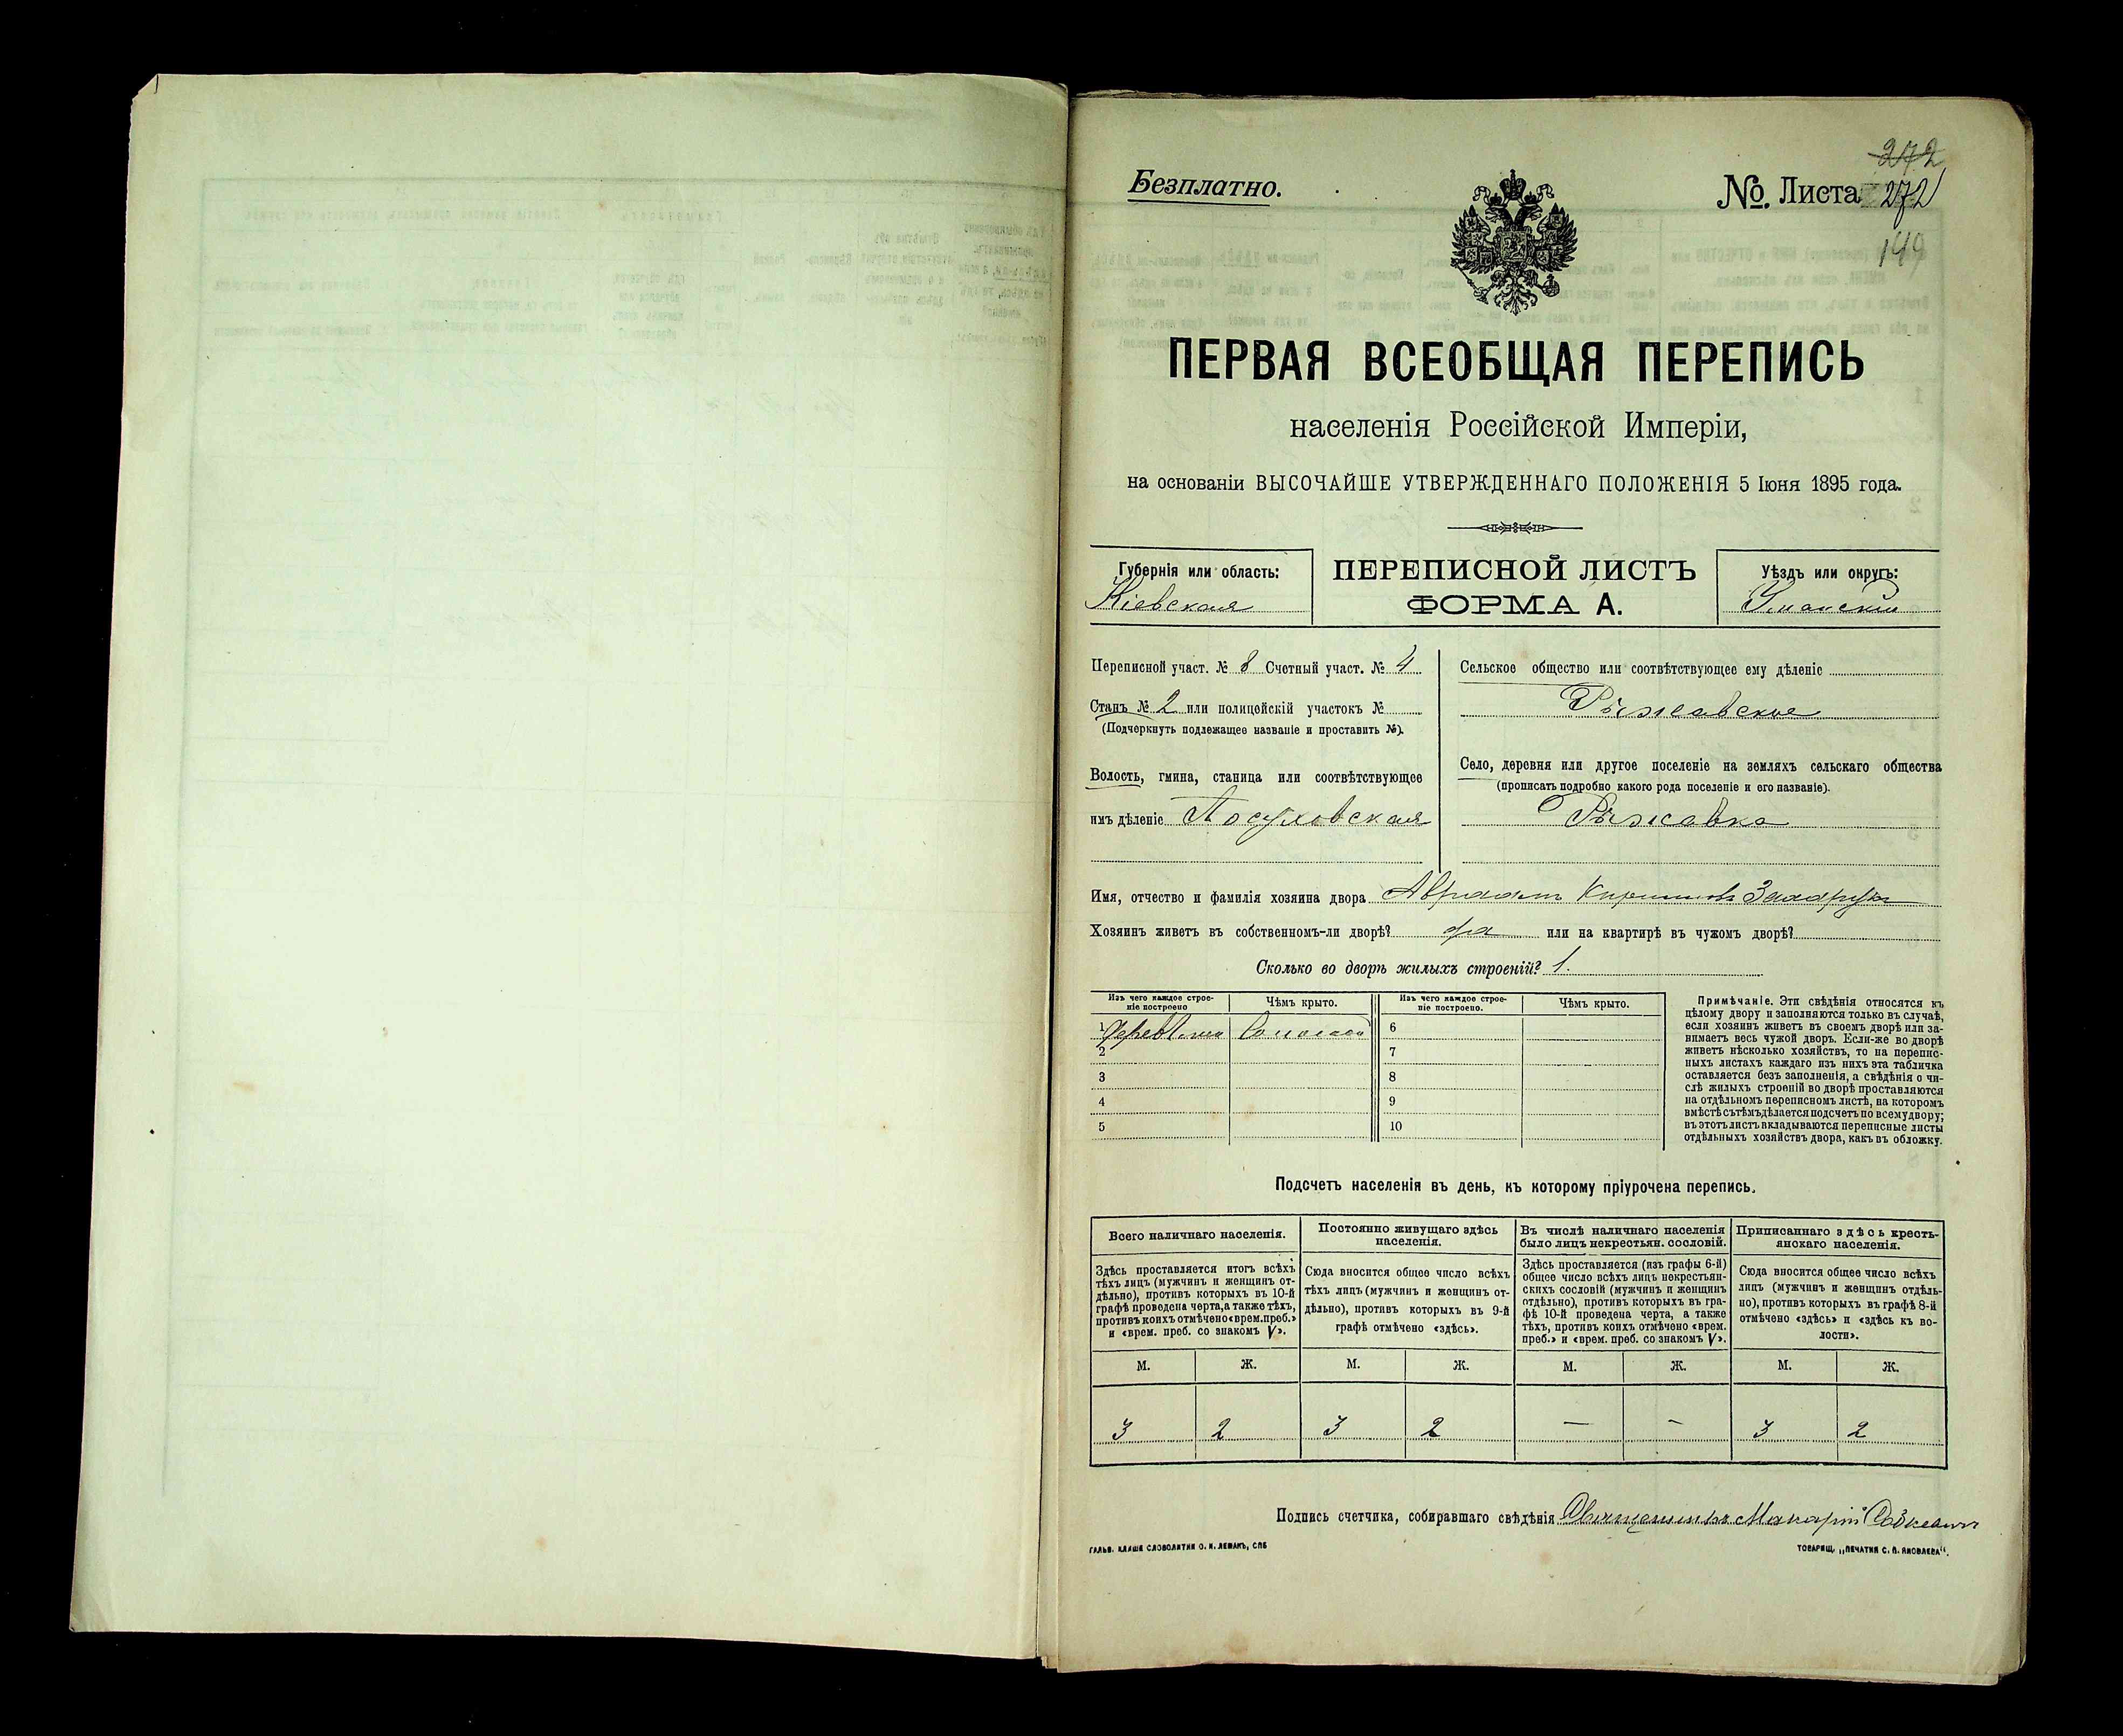 272
Безплатно.
№. Листа 272
149
ПЕРВАЯ ВСЕОБЩАЯ ПЕРЕПИСЬ
населенія Россійской Имперіи,
на основаніи ВЫСОЧАЙШЕ УТВЕРЖДЕННАГО ПОЛОЖЕНІЯ 5 Іюня 1895 года.
Губернія или область:
Кіевская
ПЕРЕПИСНОЙ ЛИСТЪ
ФОРМА А.
Уѣздъ или округъ:
Уманскій
Переписной участ. № 8 Счетный участ. № 4
Станъ № 2 или полицейскій участокъ №
(Подчеркнуть подлежащее названіе и проставить №).
Волость, гмина, станица или соотвѣтствующее
имъ дѣленіе Посуховская
Сельское общество или соотвѣтствующее ему дѣленіе
Рыжавское
Село, деревня или другое поселеніе на земляхъ сельскаго общества
(прописать подробно какого рода поселеніе и его названіе).
Рыжавка
Имя, отчество и фамилія хозяина двора Авраам
Хозяинъ живетъ въ собственномъ-ли дворѣ? да или на квартирѣ въ чужомъ дворѣ?
Сколько во дворѣ жилыхъ строеній? 1.
Изъ чего каждое строе-
ніе построено
Чѣмъ крыто.
Изъ чего каждое строе-
ніе построено.
Чѣмъ крыто.
1 Соломой
2
3
4
5
6
7
8
9
10
Примѣчаніе. Эти свѣдѣнія относятся къ
цѣлому двору и заполняются только въ случаѣ,
если хозяинъ живетъ въ своемъ дворѣ или за-
нимаетъ весь чужой дворъ. Если-же во дворѣ
живетъ нѣсколько хозяйствъ, то на перепис-
ныхъ листахъ каждаго изъ нихъ эта табличка
оставляется безъ заполненія, а свѣдѣнія о чи-
слѣ жилыхъ строеній во дворѣ проставляются
на отдѣльномъ переписномъ листѣ, на которомъ
вмѣстѣ съ тѣмъ дѣлается подсчетъ по всему двору;
въ этотъ листъ вкладываются переписные листы
отдѣльныхъ хозяйствъ двора, какъ въ обложку.
Подсчетъ населенія въ день, къ которому пріурочена перепись.
Всего наличнаго населенія.
Постоянно живущаго здѣсь
населенія.
Въ числѣ наличнаго населенія
было лицъ некрестьян. сословій.
Приписаннаго здѣсь кресть-
янскаго населенія.
Здѣсь проставляется итогъ всѣхъ
тѣхъ лицъ (мужчинъ и женщинъ от-
дѣльно), противъ которыхъ въ 10-й
графѣ проведена черта, а также тѣхъ,
противъ коихъ отмѣчено «врем. преб.»
и «врем. преб. со знакомъ V».
Сюда вносится общее число всѣхъ
тѣхъ лицъ (мужчинъ и женщинъ от-
дѣльно), противъ которыхъ въ 9-й
графѣ отмѣчено «здѣсь».
Здѣсь проставляется (изъ графы 6-й)
общее число всѣхъ лицъ некрестьян-
скихъ сословій (мужчинъ и женщинъ
отдѣльно), противъ которыхъ въ гра-
фѣ 10-й проведена черта, а также
тѣхъ, противъ коихъ отмѣчено «врем.
преб.» и «врем. преб. со знакомъ V».
Сюда вносится общее число всѣхъ
лицъ (мужчинъ и женщинъ отдѣль-
но), противъ которыхъ въ графѣ 8-й
отмѣчено «здѣсь» и «здѣсь къ во-
лости».
М. Ж. М. Ж. М. Ж. М. Ж.
3 2 3 2 — - 3 2
Подпись счетчика, собиравшаго свѣдѣнія Священникъ Макарій
ГАЛЬВ. КЛИШЕ СЛОВОЛИТНИ О. И. ЛЕМАНЪ, СПБ
ТОВАРИЩ. „ПЕЧАТНЯ С. П. ЯКОВЛЕВА“.